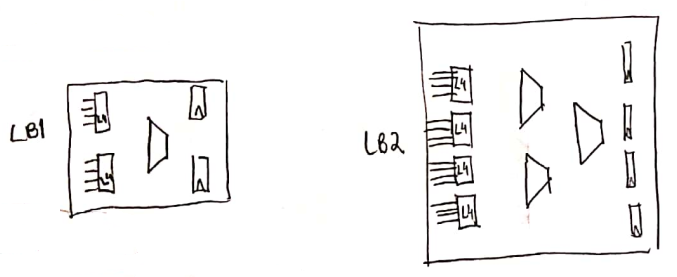 LB1
L4
L4
LB2
L4
L4
L4
L4